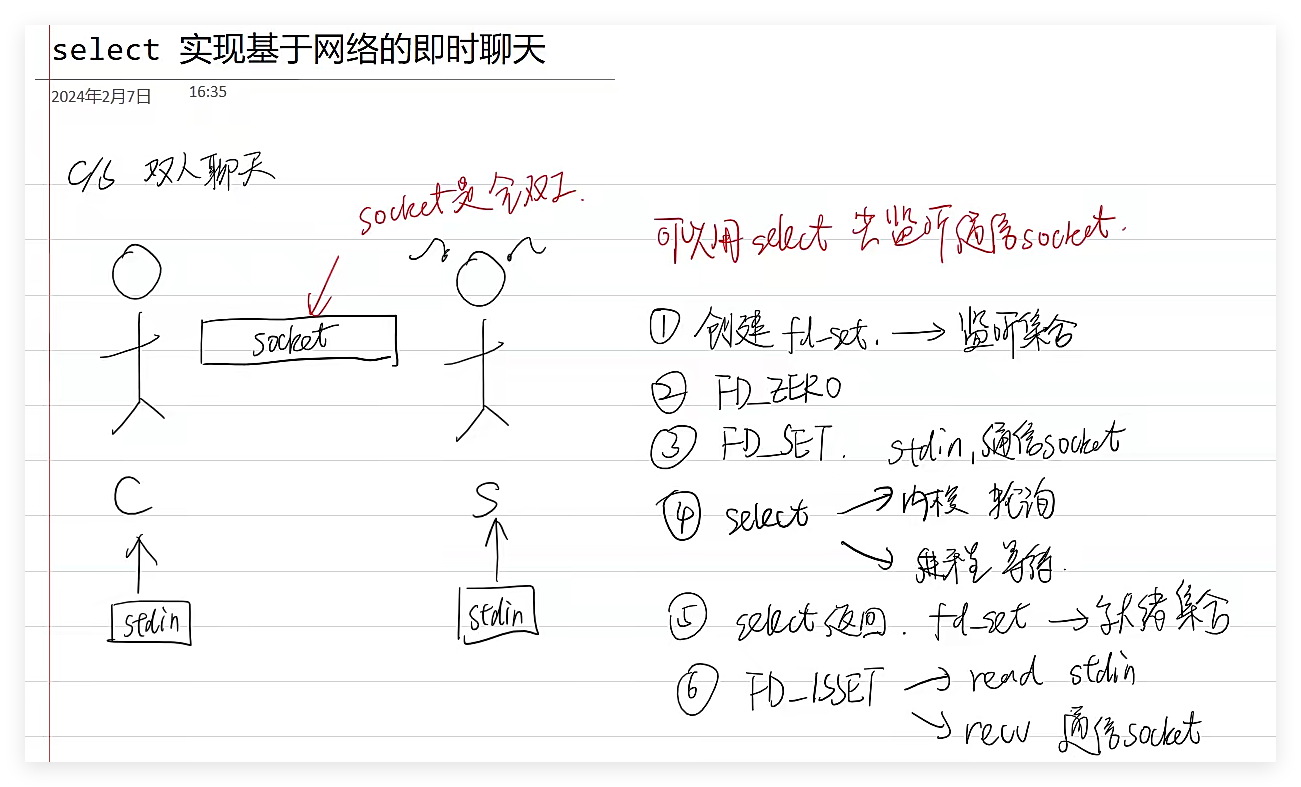 select 实现基于网络的即时聊天
2024年2月7日 16:35
C/S 双人聊天
socket是全双工.
socket
C
S
stdin
stdin
可以用select 去监听通信socket.
① 创建 fd_set. → 监听集合
② FD_ZERO
③ FD_SET. stdin,通信socket
④ select → 内核 轮询
→ 进程 等待.
⑤ select 返回. fd_set → 就绪集合
⑥ FD_ISSET → read stdin
→ recv 通信socket